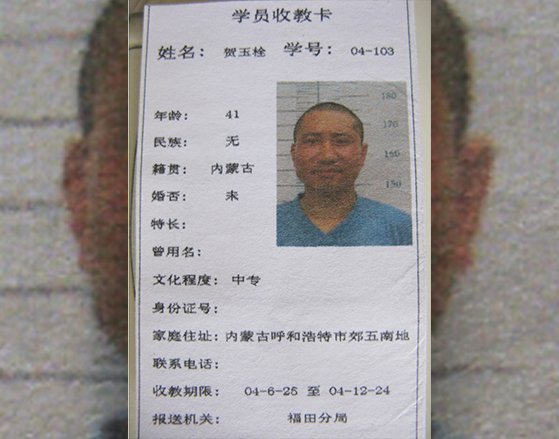 学员收教卡
姓名: 贺玉栓 学号: 04-103
年龄: 41
民族: 无
籍贯: 内蒙古
婚否: 未
特长:
曾用名:
文化程度: 中专
身份证号:
家庭住址: 内蒙古呼和浩特市郊五南地
联系电话:
收教期限: 04-6-25 至 04-12-24
报送机关: 福田分局
180
170
160
150